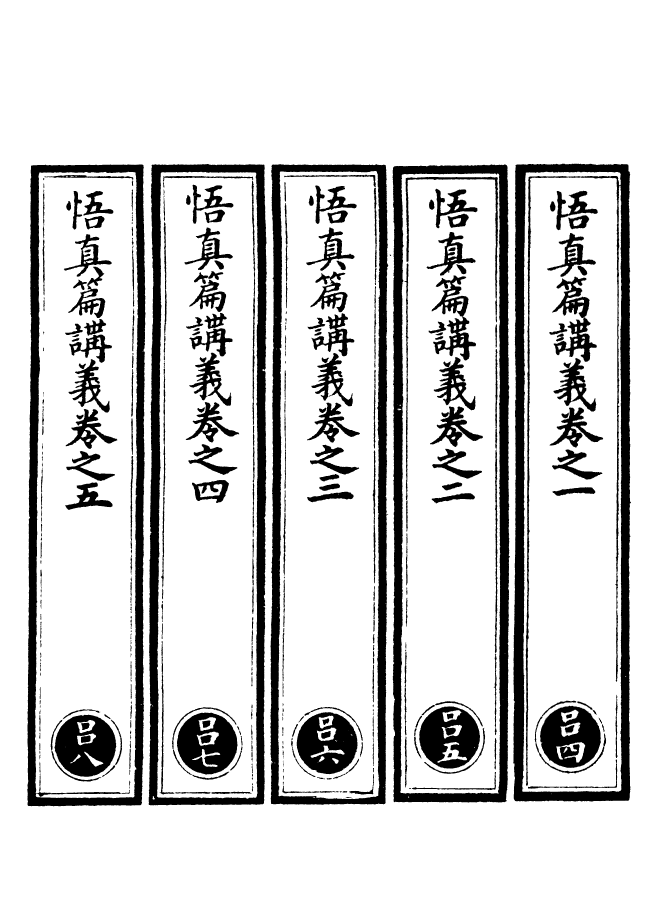 悟真篇講義卷之一
吕四
悟真篇講義卷之二
吕五
悟真篇講義卷之三
吕六
悟真篇講義卷之四
吕七
悟真篇講義卷之五
吕八